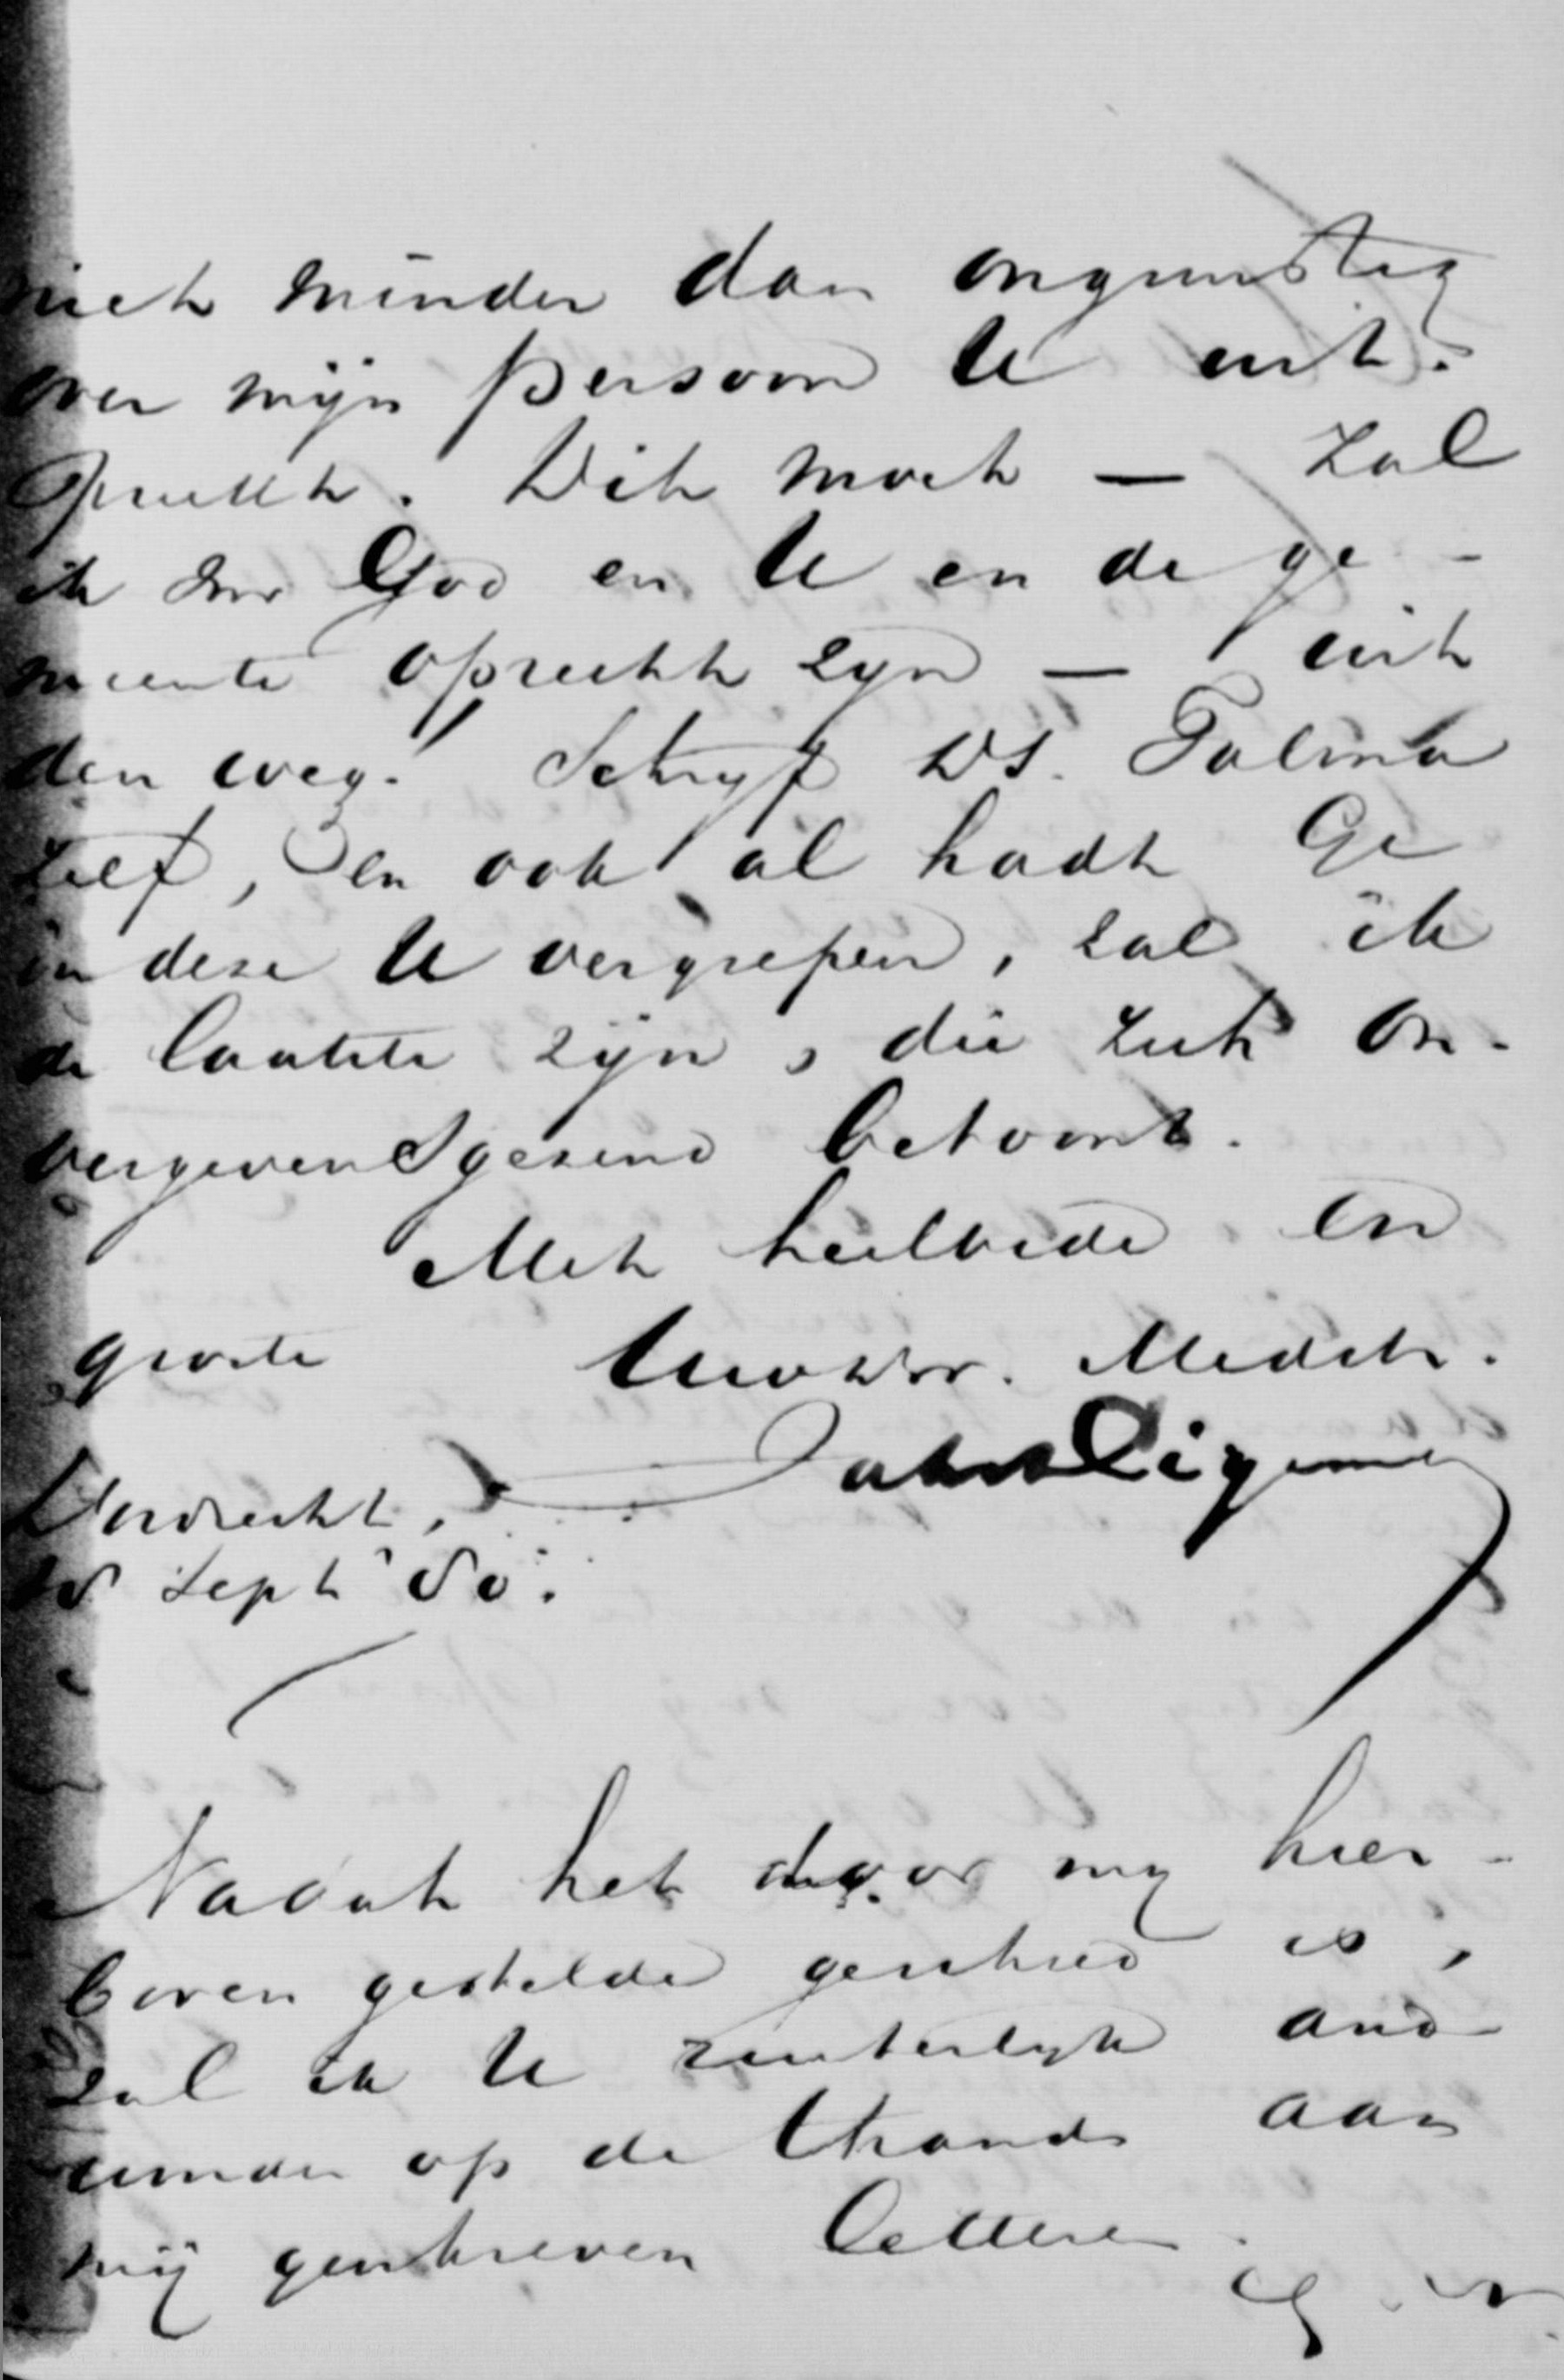 niet minder dan ongunstig
over mijn persoon U uit-
spreekt. Dit moet — zal
ik voor God en U en de ge-
meente oprecht zyn — uit
den weg! Schryf Ds. Talma
zelf, en ook al hadt Ge
in deze U vergrepen, zal ik
de laatste zijn, die zich on-
vergevensgezind betoont.
Met heilbede en
groete Uwdw. Medebr.
Dordrecht,
Sept. 80.
Nadat het door my hier-
boven gestelde geschied is,
zal ik U ant-
op de thans aan
mij geschreven letteren